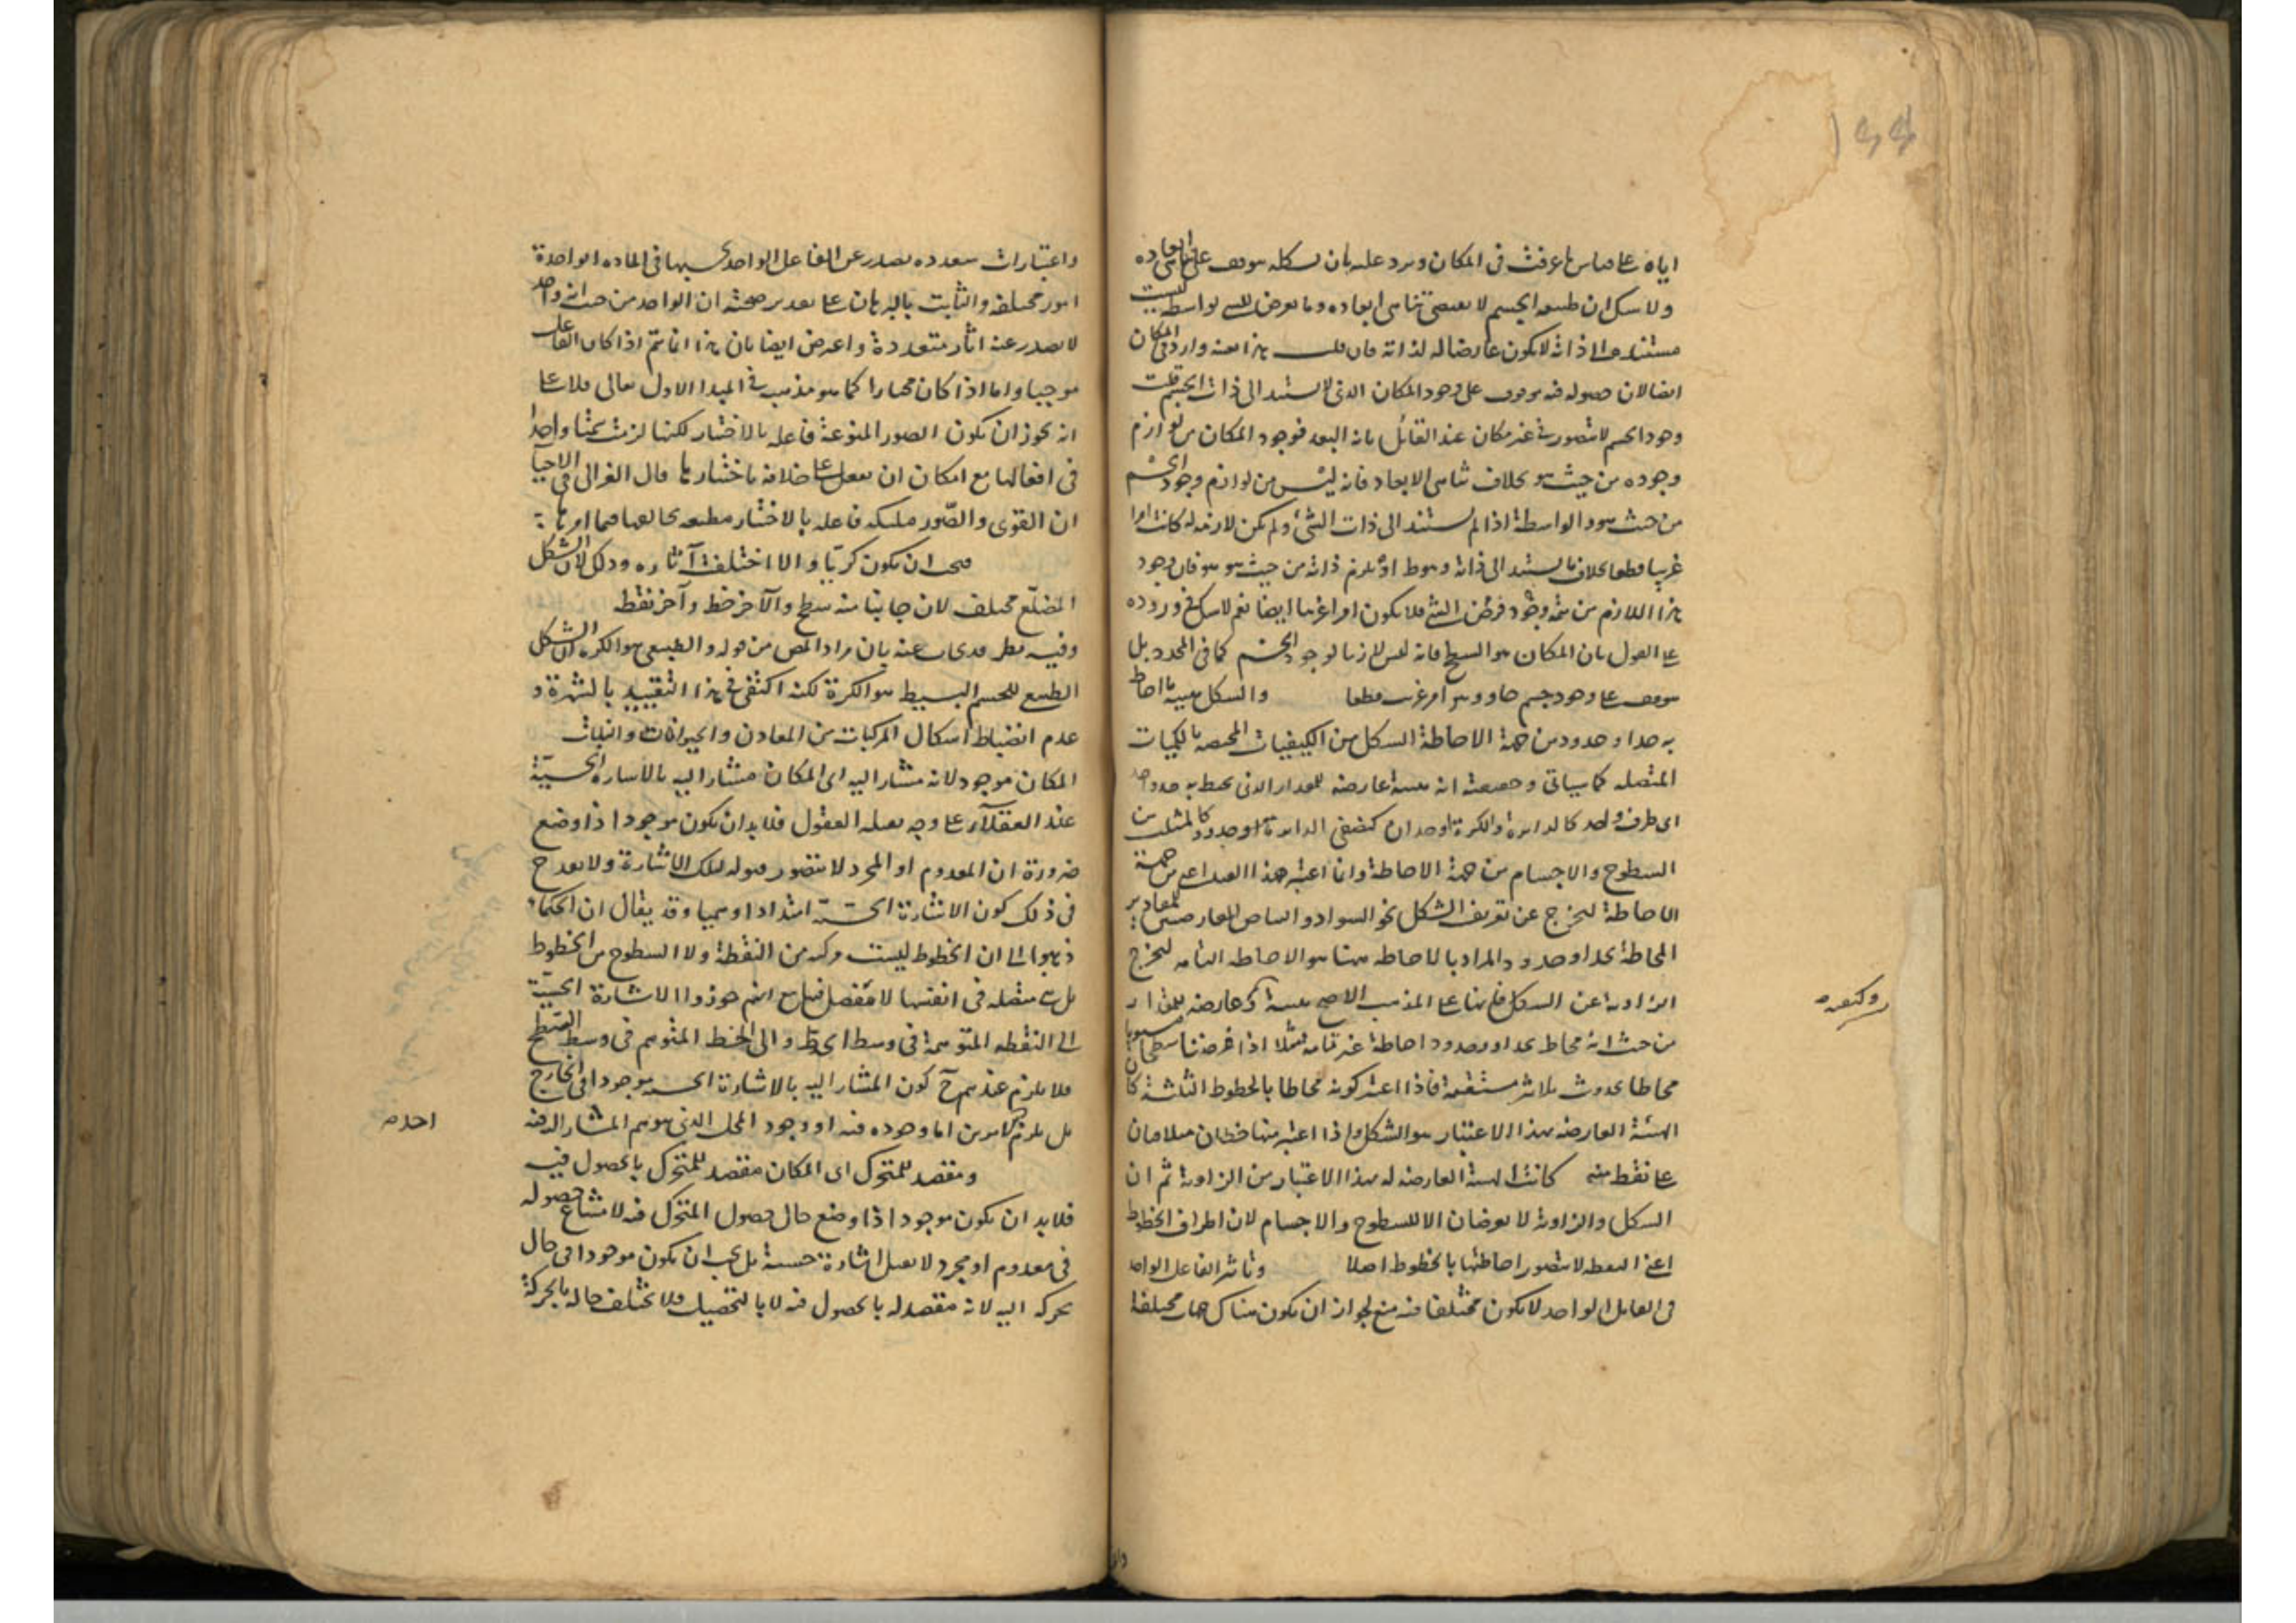 اياه على قياس ما عرفت فى المكان ويرد عليه بان شكله موقوف على تناهى ابعاده
ولا شك ان طبيعة الجسم لا تقتضى تناهى ابعاده وما يعرض للشئ بواسطة ليست
مستندة الى ذاته لا يكون عارضا له لذاته فان قلت هذا بعينه وارد فى المكان
ايضا لان حصوله فيه موقوف على وجود المكان الذى لا يستند الى ذات الجسم قلت
وجود الجسم لا يتصور فى غير مكان عند القائل بانه البعد فوجود المكان من لوازم
وجوده من حيث هو بخلاف تناهى الابعاد فانه ليس من لوازم وجود الجسم
من حيث هو والواسطة اذا لم تستند الى ذات الشئ ولم تكن لازمة له كانت امرا
غريبا قطعا بخلاف ما يستند الى ذاته وهو او يلزم ذاته من حيث هو هو فان وجود
هذا اللازم من تتمة وجود فرض الشئ فلا يكون امرا غريبا ايضا نعم لا شك فى وروده
على القول بان المكان هو السطح فانه ليس لازما لوجود الجسم كما فى المحدد بل
موقوف على وجود جسم حاو وهو امر غريب قطعا والشكل هيئة ما احاط
به حد او حدود من جهة الاحاطة الشكل من الكيفيات المختصة بالكميات
المتصلة كما سياتى وحقيقته انه هيئة عارضة للمقدار الذى يحيط به حد واحد
اى طرف واحد كالدائرة والكرة او حدان كنصفى الدائرة او حدود كالمثلث من
السطوح والاجسام من جهة الاحاطة وانما اعتبر هذا القيد اعنى من جهة
الاحاطة ليخرج عن تعريف الشكل نحو السواد والبياض العارضين للمقادير
المحاطة بحد او حدود والمراد بالاحاطة ههنا هو الاحاطة التامة ليخرج
الزاوية عن الشكل فانها على المذهب الاصح هيئة عارضة للمقدار
من حيث انه محاط بحد او حدود احاطة غير تامة مثلا اذا فرضنا سطحا مستويا
محاطا بحدوث ثلاثة مستقيمة فاذا اعتبر كونه محاطا بالخطوط الثلثة كان
الهيئة العارضة بهذا الاعتبار هو الشكل واذا اعتبر منها خطان متلاقيان
على نقطة منه كانت الهيئة العارضة له بهذا الاعتبار من الزاوية ثم ان
الشكل والزاوية لا يعرضان الا للسطوح والاجسام لان اطراف الخطوط
اعنى النقطة لا يتصور احاطتها بالخطوط اصلا وتاثير الفاعل الواحد
فى القابل الواحد لا يكون مختلفا فيه منع لجواز ان يكون هناك جهات مختلفة
واعتبارات متعددة يصدر عن الفاعل الواحد بحسبها فى المادة الواحدة
امور مختلفة والثابت بالبرهان على تقدير صحته ان الواحد من حيث انه واحد
لا يصدر عنه اثار متعددة واعترض ايضا بان هذا انما يتم اذا كان الفاعل
موجبا واما اذا كان مختارا كما هو مذهب فى المبدا الاول تعالى فلا على
انه يجوز ان يكون الصور المنوعة فاعلة بالاختيار لكنها لزمت واحدا
فى افعالها مع امكان ان تفعل على خلافه باختيارها قال الغزالى فى الاحيا
ان القوى والصور ملئكة فاعلة بالاختيار مطيعة لخالقها فيما امرها
فيجب ان يكون كريا والا اختلفت آثاره وذلك لان الشكل
المضلع مختلف لان جانبا منه سطح والآخر خط وآخر نقطة
وفيه نظر قد يجاب عنه بان مراد المص من قوله والطبيعى هو الكرة ان الشكل
الطبيعى للجسم البسيط هو الكرة لكنه اكتفى فى هذا التقييد بالشهرة و
عدم انضباط اشكال المركبات من المعادن والحيوانات والنبات
المكان موجود لانه مشار اليه اى المكان مشار اليه بالاشارة الحسية
عند العقلاء على وجه يقبله العقول فلا بد ان يكون موجودا ذا وضع
ضرورة ان المعدوم او المجرد لا يتصور قبوله لتلك الاشارة ولا يقدح
فى ذلك كون الاشارة الحسية امتدادا وهميا وقد يقال ان الحكماء
ذهبوا الى ان الخطوط ليست مركبة من النقطة ولا السطوح من الخطوط
بل هى متصلة فى انفسها لا مفصل فيها مع انهم جوزوا الاشارة الحسية
الى النقطة المتوهمة فى وسط الخط والى الخط المتوهم فى وسط السطح
فلا يلزم عندهم ح كون المشار اليه بالاشارة الحسية موجودا فى الخارج
بل يلزم الامرين اما وجوده فيه او وجود المحل الذى هو المشار اليه فيه
ومقصد للمتحرك اى المكان مقصد للمتحرك بالحصول فيه
فلا بد ان يكون موجودا ذا وضع حال حصول المتحرك فيه لامتناع حصوله
فى معدوم او مجرد لا يقبل اشارة حسية بل يجب ان يكون موجودا فى حال
تحركه اليه لانه مقصد له بالحصول فيه لا بالتحصيل فلا يختلف حاله بالحركة
احد